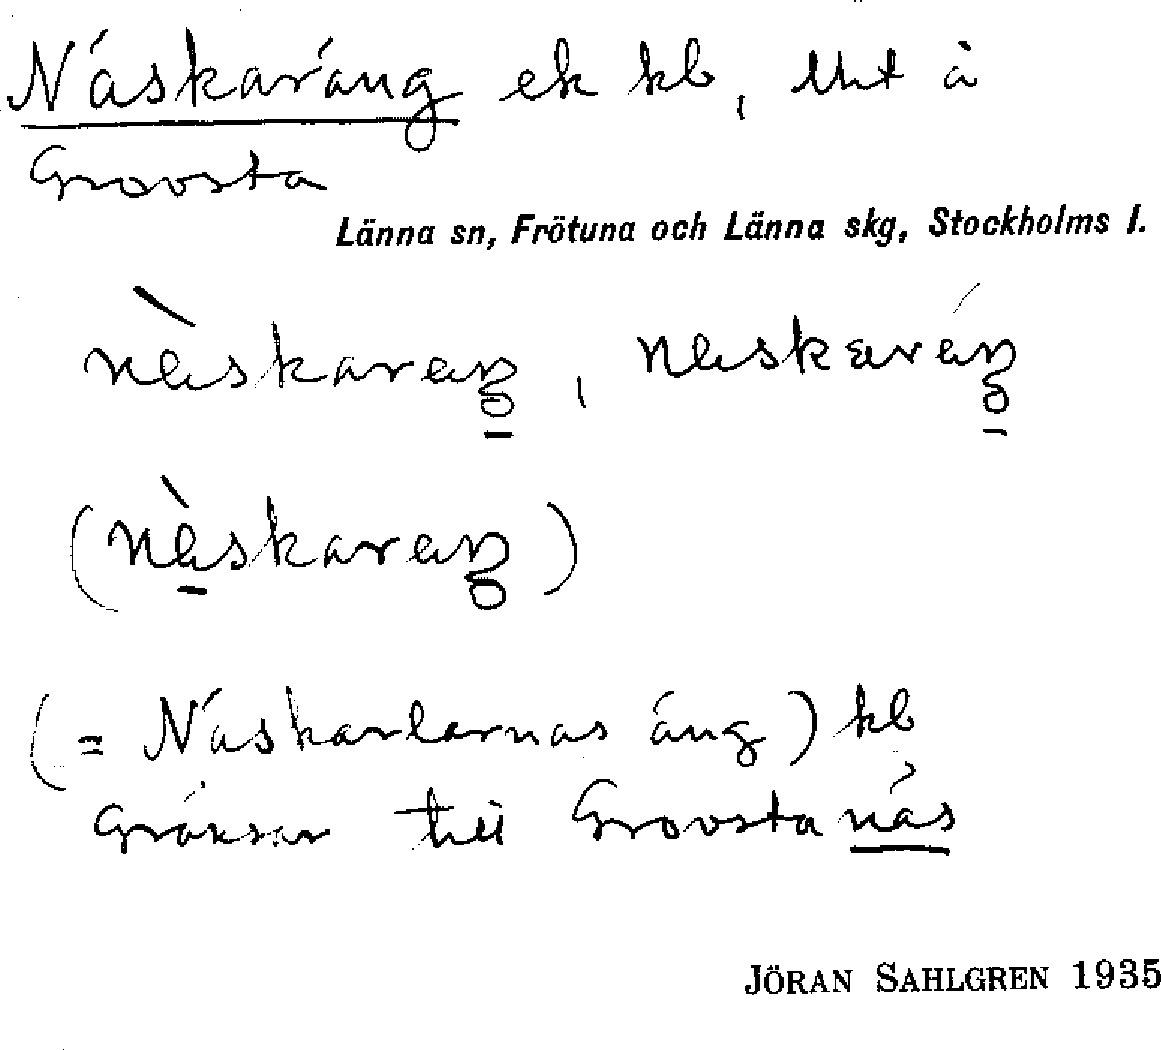 Näskaräng ek kb, Uht å
Grovsta
Länna sn, Frötuna och Länna skg, Stockholms l.
nèskaraŋ, neskaráŋ
(nèskaraŋ)
(= Näskarlarnas äng) kb
gränsar till Grovstanäs
JÖRAN SAHLGREN 1935